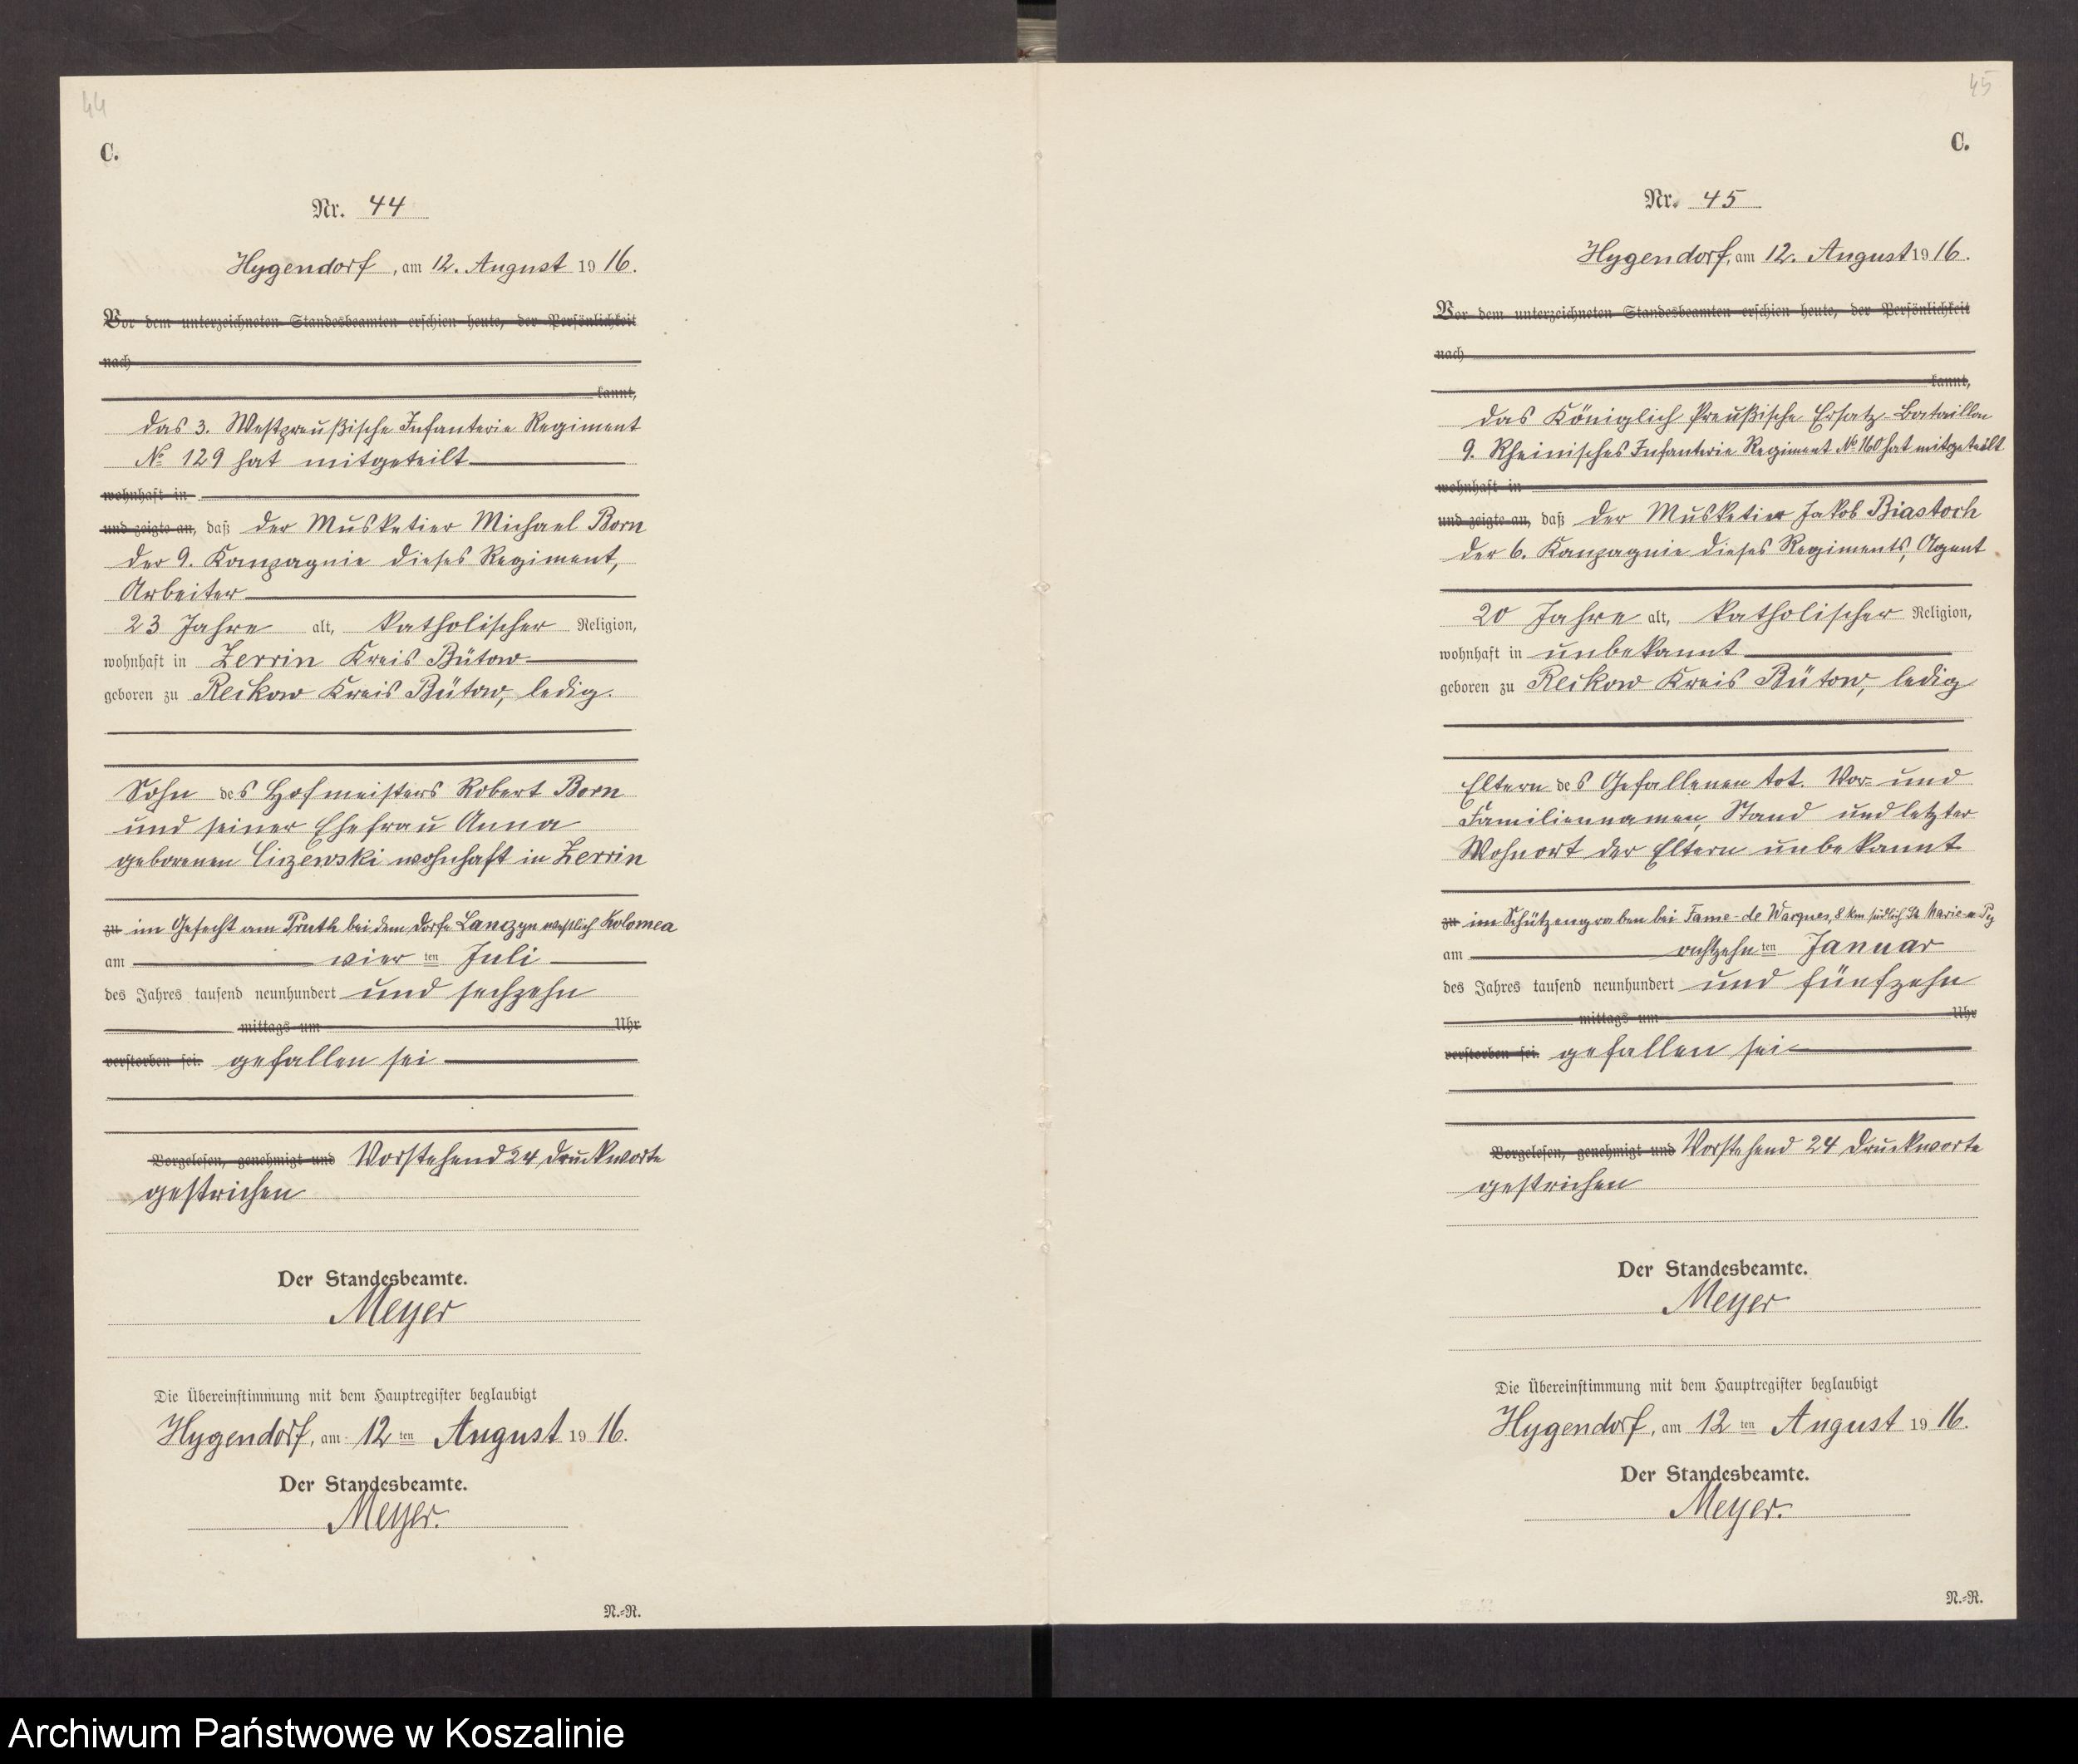 44
C.
Nr. 44
Hygendorf, am 12. August 1916.
Vor dem unterzeichneten Standesbeamten erschien heute, der Persönlichkeit
nach
kannt,
das 3. Westpreußische Infanterie Regiment
No 129 hat mitgeteilt
wohnhaft in
und zeigte an, daß der Musketier Michael Born
der 9. Kompagnie dieses Regiment,
Arbeiter
23 Jahre alt, katholischer Religion,
wohnhaft in Zerrin Kreis Bütow
geboren zu Reikow Kreis Bütow, ledig.
Sohn des Hofmeisters Robert Born
und seiner Ehefrau Anna
geborenen wohnhaft in Zerrin
zu im Gefecht am Pruth bei dem Dorfe Lanczyn westlich Kolomea
am vier ten Juli
des Jahres tausend neunhundert und sechzehn
mittags um Uhr
verstorben sei. gefallen sei
Vorgelesen, genehmigt und Vorstehend 24 Druckworte
gestrichen
Der Standesbeamte.
Meyer
Die Übereinstimmung mit dem Hauptregister beglaubigt
Hygendorf, am 12 ten August 1916.
Der Standesbeamte.
Meyer.
N.=R.
45
C.
Nr. 45
Hygendorf, am 12. August 1916.
Vor dem unterzeichneten Standesbeamten erschien heute, der Persönlichkeit
nach
kannt,
das Königlich Preußische Ersatz-Bataillon
9. Rheinisches Infanterie Regiment No 160 hat mitgeteilt
wohnhaft in
und zeigte an, daß der Musketier Jakob Biastoch
der 6. Kompagnie dieses Regiments, Agent
20 Jahre alt, katholischer Religion,
wohnhaft in unbekannt
geboren zu Reikow Kreis Bütow, ledig
Eltern des Gefallenen tot. Vor- und
Familiennamen, Stand und letzter
Wohnort der Eltern unbekannt
zu im Schützengraben bei Fame-de Warques, 8 km südlich St Marie a Py
am achtzehn ten Januar
des Jahres tausend neunhundert und fünfzehn
mittags um Uhr
verstorben sei. gefallen sei
Vorgelesen, genehmigt und Vorstehend 24 Druckworte
gestrichen
Der Standesbeamte.
Meyer
Die Übereinstimmung mit dem Hauptregister beglaubigt
Hygendorf, am 12 ten August 1916.
Der Standesbeamte.
Meyer.
N.=R.
Archiwum Państwowe w Koszalinie